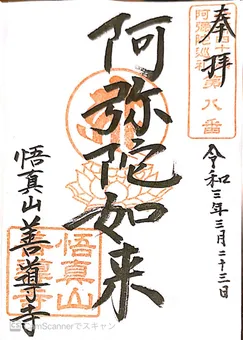 奉拝
第八番
令和三年三月二十三日
阿弥陀如来
悟真山
悟真山善導寺
CamScannerでスキャン